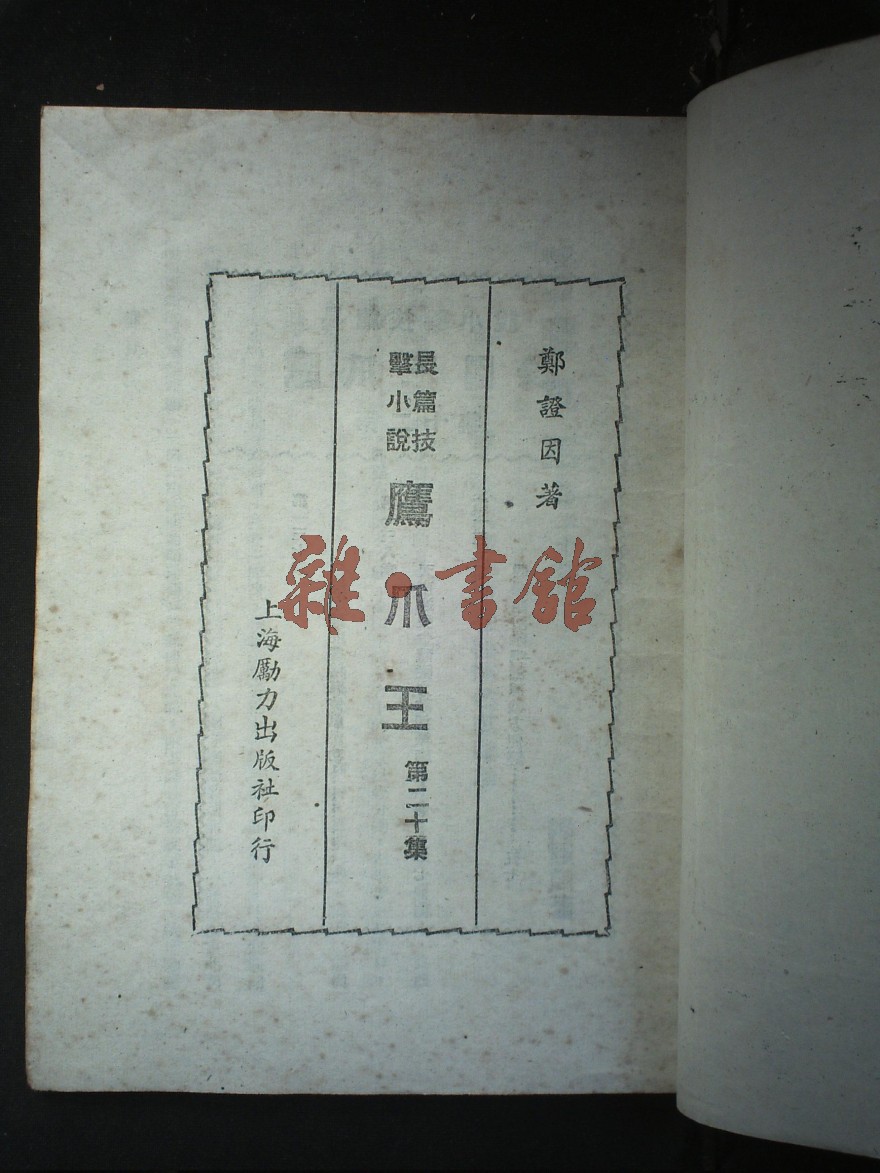 鄭證因著
長篇技
擊小說
鷹爪王
第二十集
上海勵力出版社印行
雜·書館